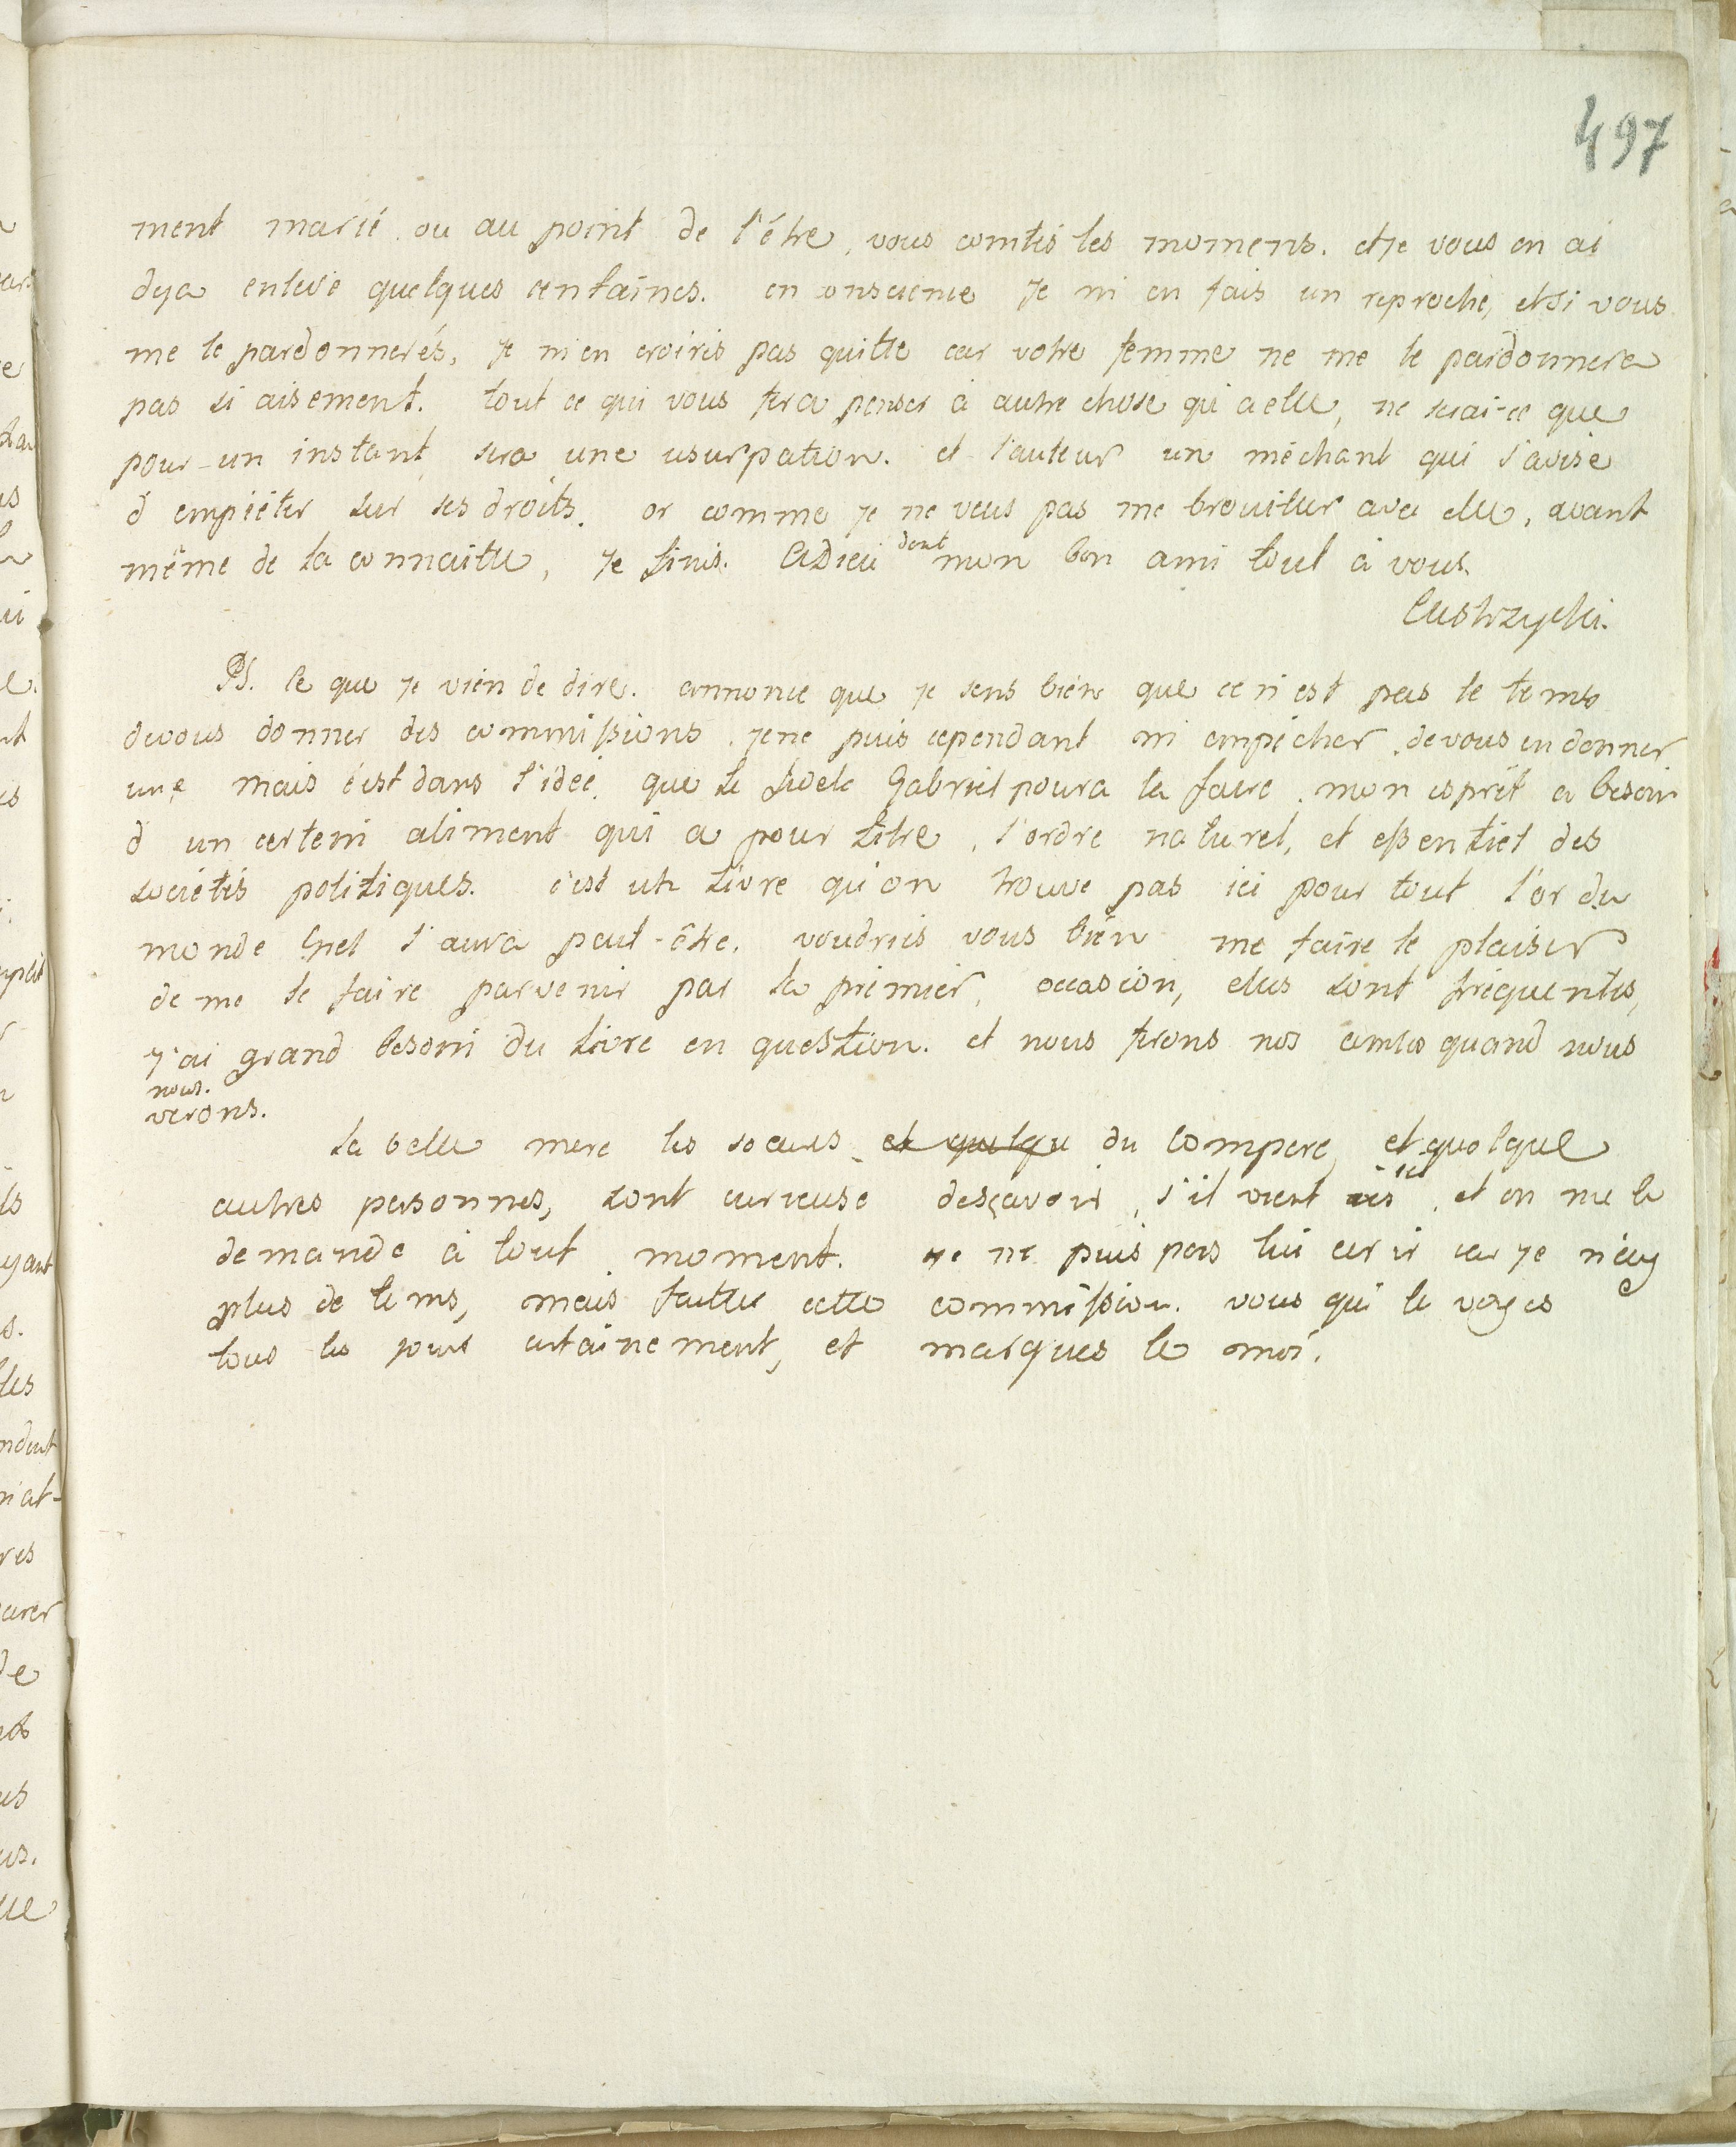 497
ment marié ou au point de l'être, vous comtés les momens. et je vous en ai
deja enlevé quelques centaines. en conscience je m'en fais un reproche, et si vous
me le pardonnerés, je m'en croiris pas quitte car votre femme ne me le pardonnera
pas si aisement. tout ce qui vous fera penser à autre chose qu'a elle, ne serai-ce que
pour un instant, sera une usurpation. et l'auteur un méchant qui s'avise
d'empiéter sur ses droits. or comme je ne veus pas me brouiller avec elle, avant
même de la connaitre, je finis. Adieu dont mon bon ami tout à vous.
PS. Ce que je vien de dire. annonce que je sens bien que ce n'est pas le tems
devous donner des commissions. jene puis cependant m'empêcher de vous en donner
une mais c'est dans l'idée, que le Gabriel poura la faire. mon esprit a besoin
d'un certein aliment qui a pour titre, l'ordre naturel, et essentiel des
sociétés politiques. c'est un livre qu'on trouve pas ici pour tout l'or du
monde l'aura peut-être. voudriés vous bien me faire le plaisir
de me le faire parvenir par la premier, occasion, elles sont fréquentes,
j'ai grand besoin du livre en question. et nous ferons nos comtes quand nous
nous.
verons.
La belle mere les soeurs et quelqu du Compere, et quelque
autres personnes, sont curieuse desçavoir, s'il vient ici, et on me le
demande à tout moment. je ne puis pas lui ecrir car je n'ay
plus de tems, mais faittes cette commission. vous qui le voyes
tous les jours certainement, et marques le moi.